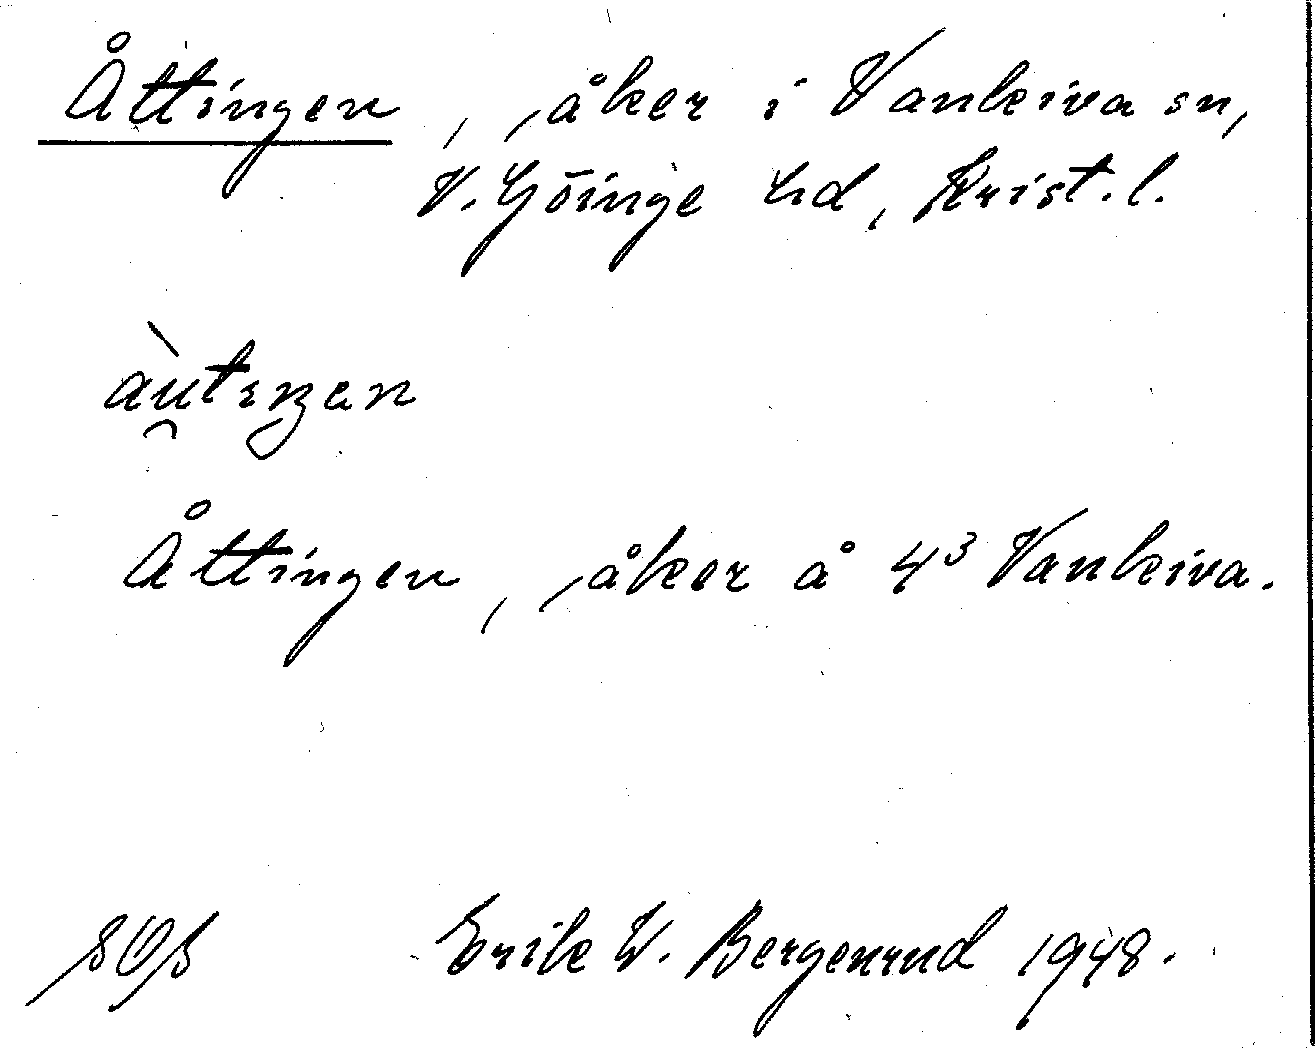 Åttingen, åker i Vankiva sn,
V. Göinge hd, Krist. l.
Åttingen, åker å 4³ Vankiva.
Erik W. Bergenrud 1948.